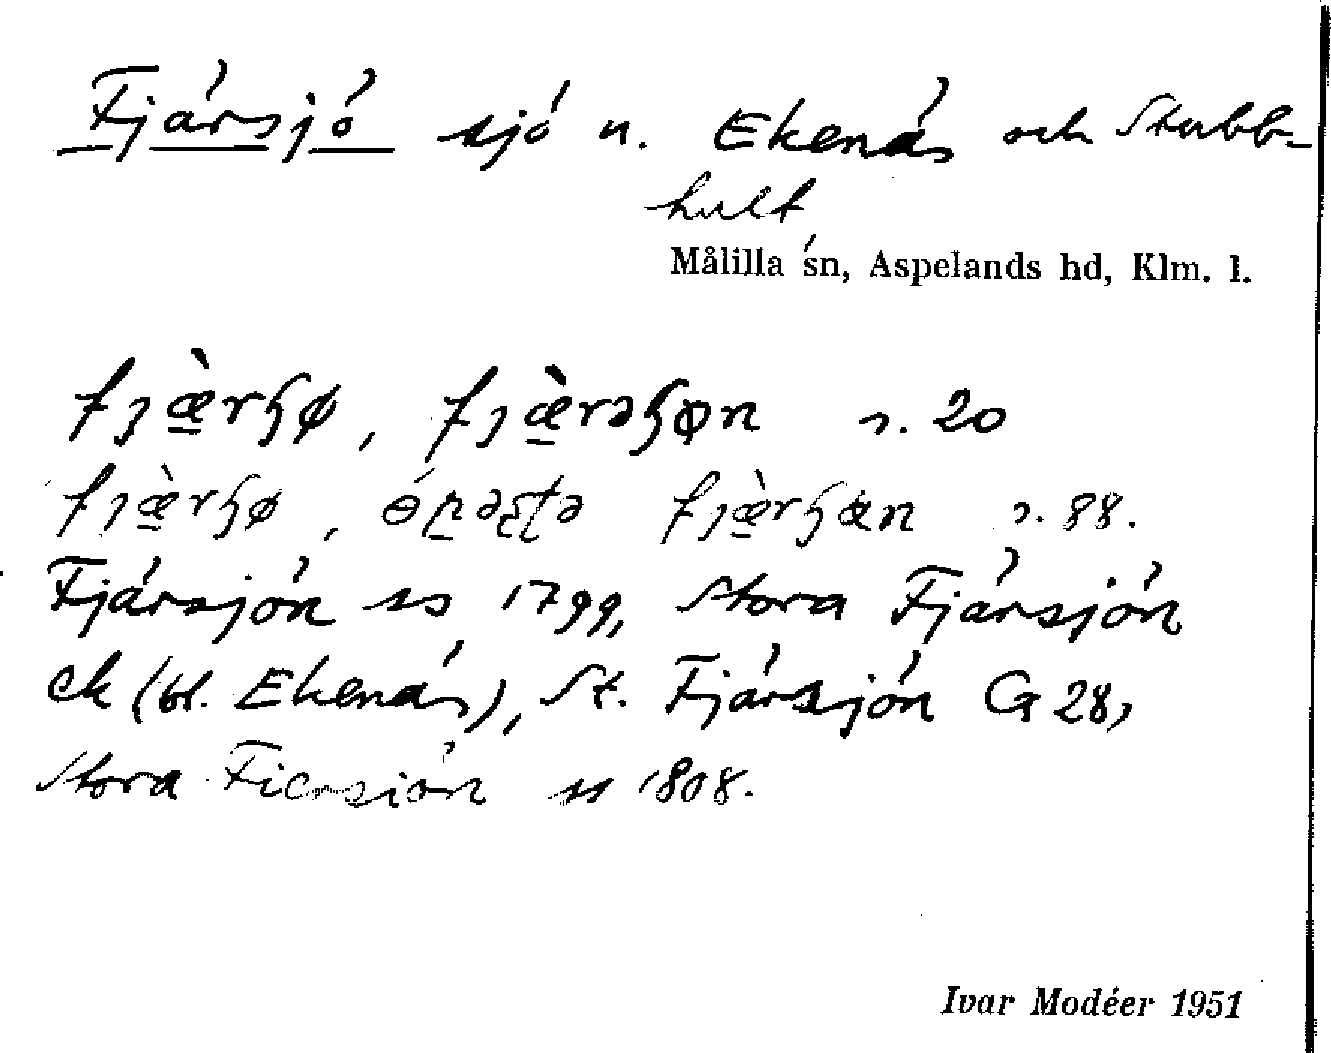 Fjärsjö sjö n. Ekenäs och Stubb-
hult
Målilla sn, Aspelands hd, Klm. l.
fjæ̀rɧø, fjæ̀rəɧøn s. 20
fjæ̀rɧø, fjæ̀rɧœn s. 88.
Fjärsjön ss 1799, Stora Fjärsjön
ek (bl. Ekenäs), St. Fjärsjön G 28,
Stora Fiersiön ss 1808.
Ivar Modéer 1951